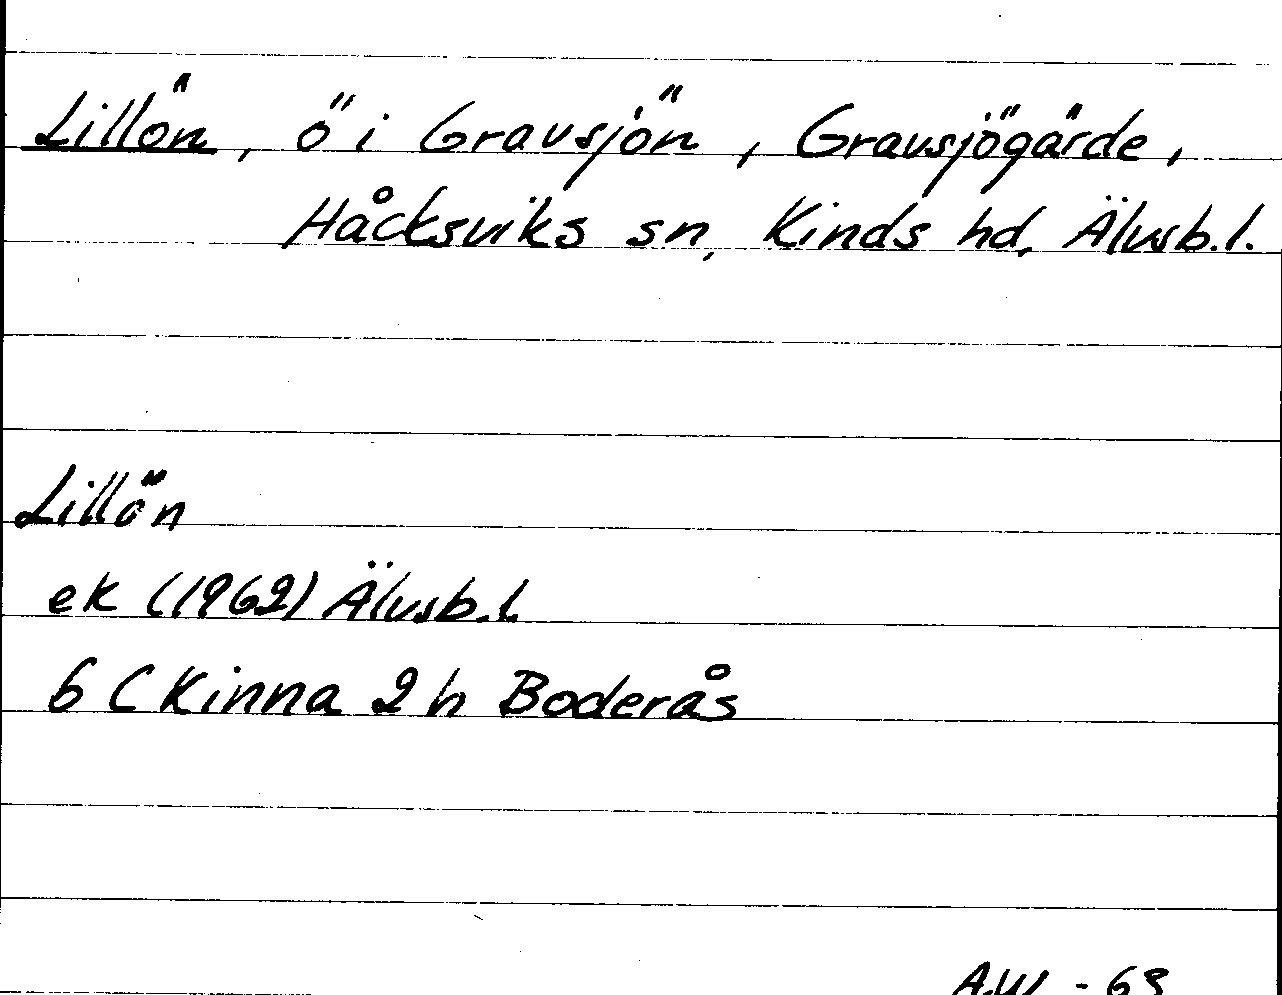 Lillön, ö i Gravsjön, Gravsjögärde,
Håcksviks sn, Kinds hd, Älvsb.l.
Lillön
ek (1962) Älvsb.l.
6 C Kinna 2 h Boderås
A.W - 63